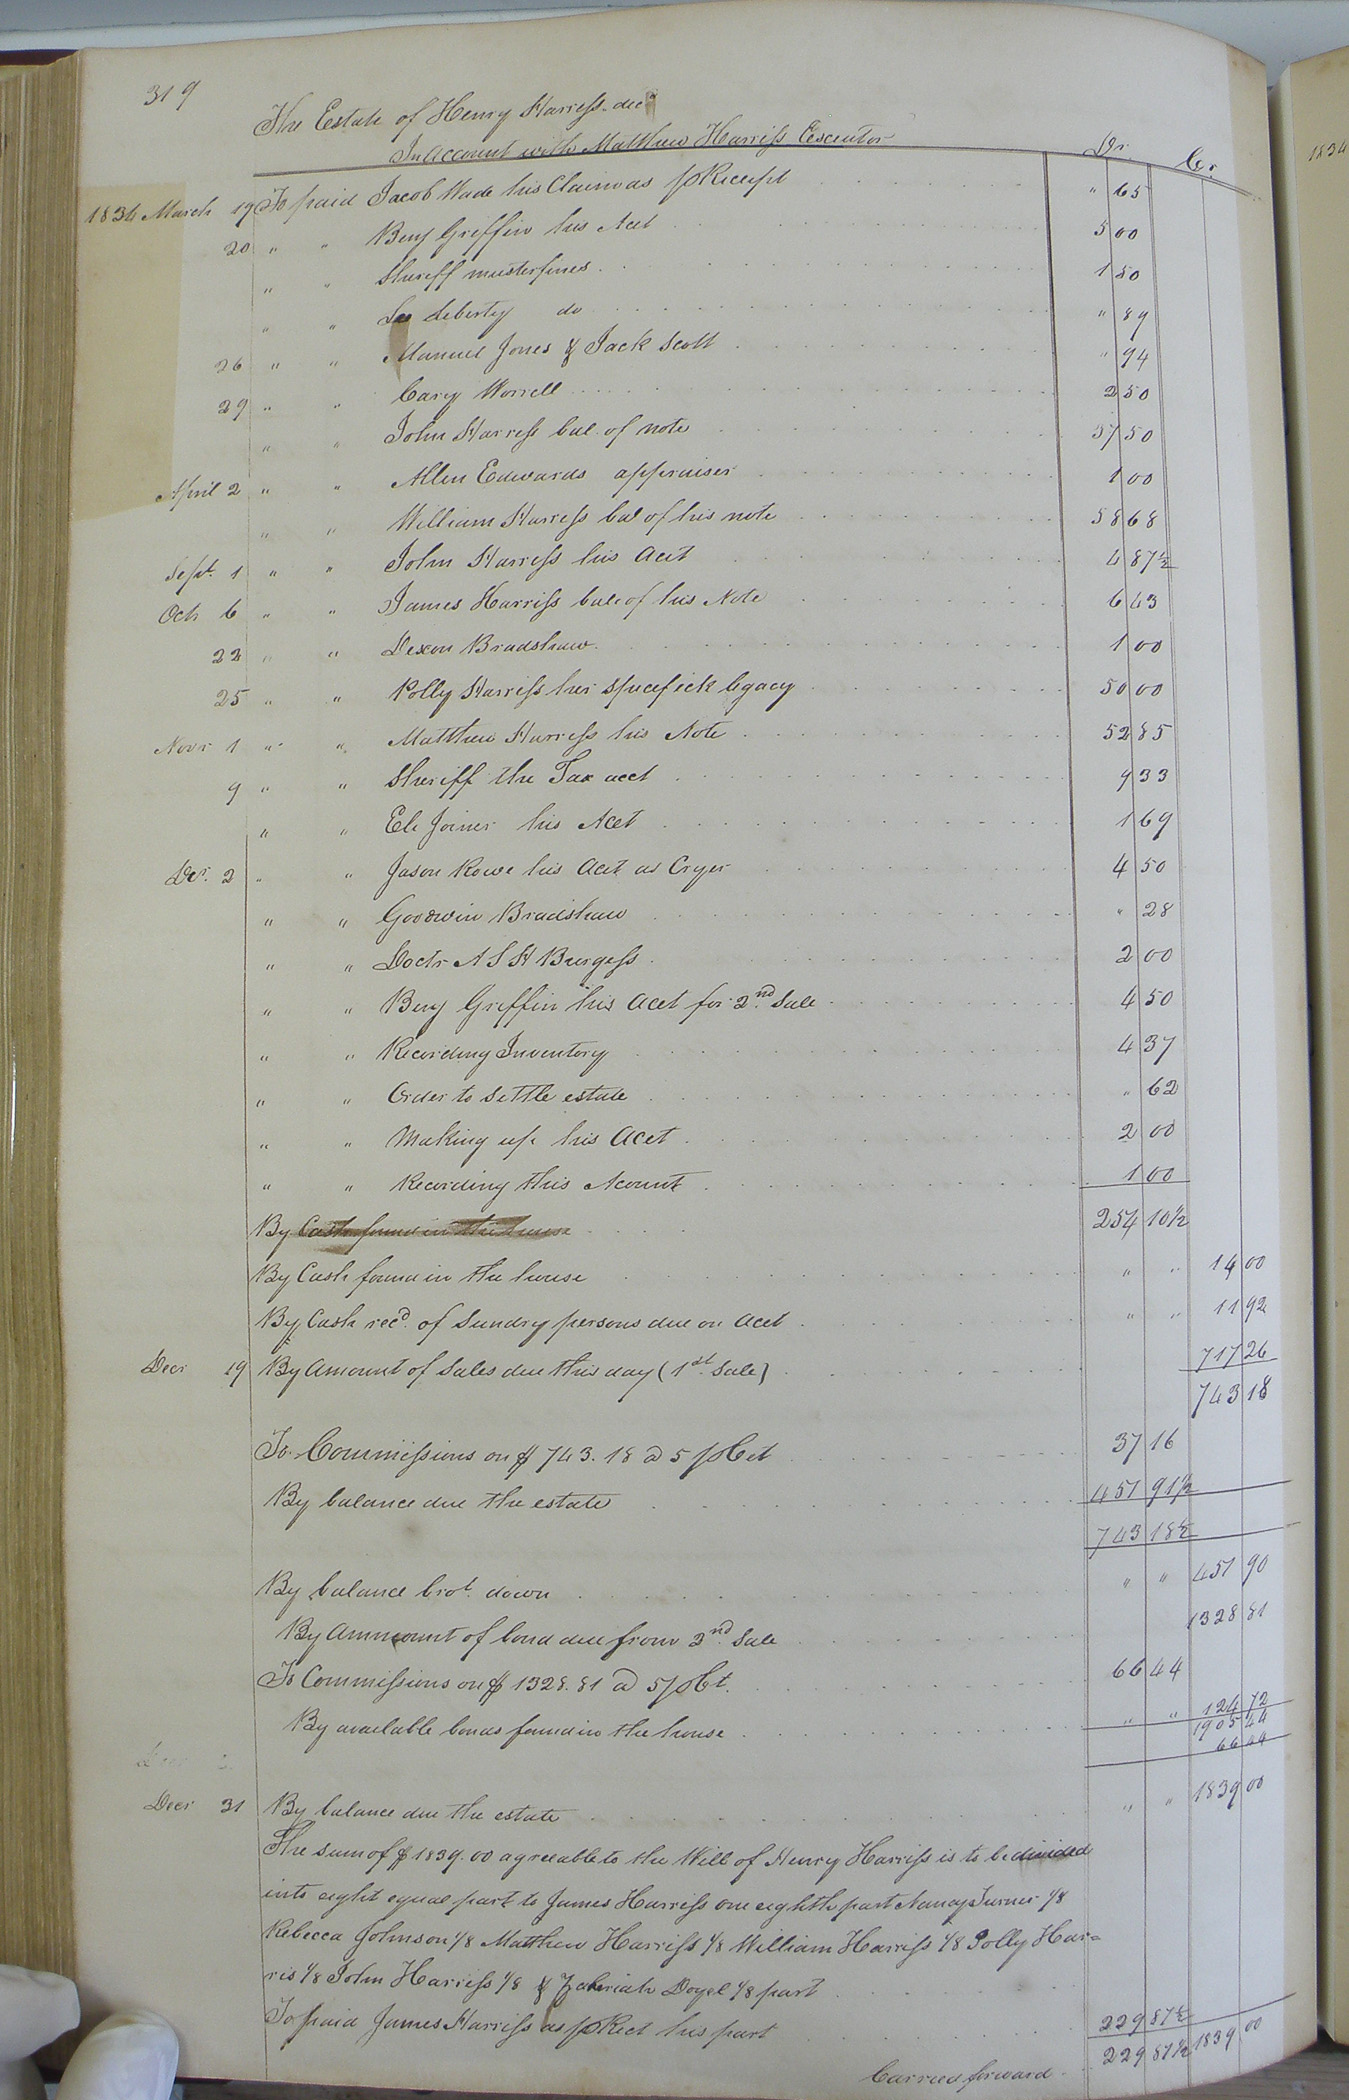 319
The Estate of Henry Harriss dec.d
In Account with Matthew Harriss Executor Dr. Cr
1836 March 19 To paid Jacob Wade his Claim as p Receipt " 65
20 " " Benj Griffin his Acct 5 00
" " Sheriff musterfines 1 50
" " do " 89
26 " " Manuel Jones & Jack Scott " 94
29 " " Cary Worrell 2 50
" " John Harress bal. of note 37 50
April 2 " " Allen Edwards appraiser 1 00
" " William Harress bal of his note 58 68
Sept. 1 " " John Harress his Acct 4 87½
Oct 6 " " James Harriss bal. of his Note 6 43
22 " " Dixon Bradshaw 1 00
25 " " Polly Harriss her specefick legacy 50 00
Novr 1 " " Matthew Harress his Note 52 85
9 " " Sheriff the Tax acct 9 33
" " Eli Joiner his Acct 1 69
Der. 2 " " Jason Rowe his Acct as Cryer 4 50
" " Goodwin Bradshaw " 28
" " Doctr A S H Burgess 2 00
" " Benj Griffin his Acct for 2nd Sale 4 50
" " Recording Inventory 4 37
" " Order to settle estate " 62
" " Making up his Acct 2 00
" " Recording this Acount 1 00
By Cash found in the house 254 10½
By Cash found in the house " " 14 00
By Cash recd. of Sundry persons due on Acct " " 11 92
Decr 19 By Amount of Sales due this day (1st Sale) 717 26
743 18
To Commissions on $ 743.18 @ 5 p Ct 37 16
By balance due the estate 451 91½
743 18½
By balance brot. down " " 451 90
By Ammount of bond due from 2nd. Sale 1328 81
To Commissions on $ 1328.81 @ 5 p Ct. 66 44
By available bonds found in the house " " 124 72
1905 44
66 44
Decr 31 By balance due the estate " " 1839 00
The sum of $ 1839.00 agreeable to the Will of Henry Harriss is to be divided
into eight equal part to James Harriss one eighth part Nancy Turner 1/8
Rebecca Johnson 1/8 Matthew Harriss 1/8 William Harriss 1/8 Polly Har=
ris 1/8 John Harriss 1/8 & Zaberiah Doyel 1/8 part
To paid James Harriss as p Rect his part 229 87½
Carried forward 229 87½ 1839 00
1834